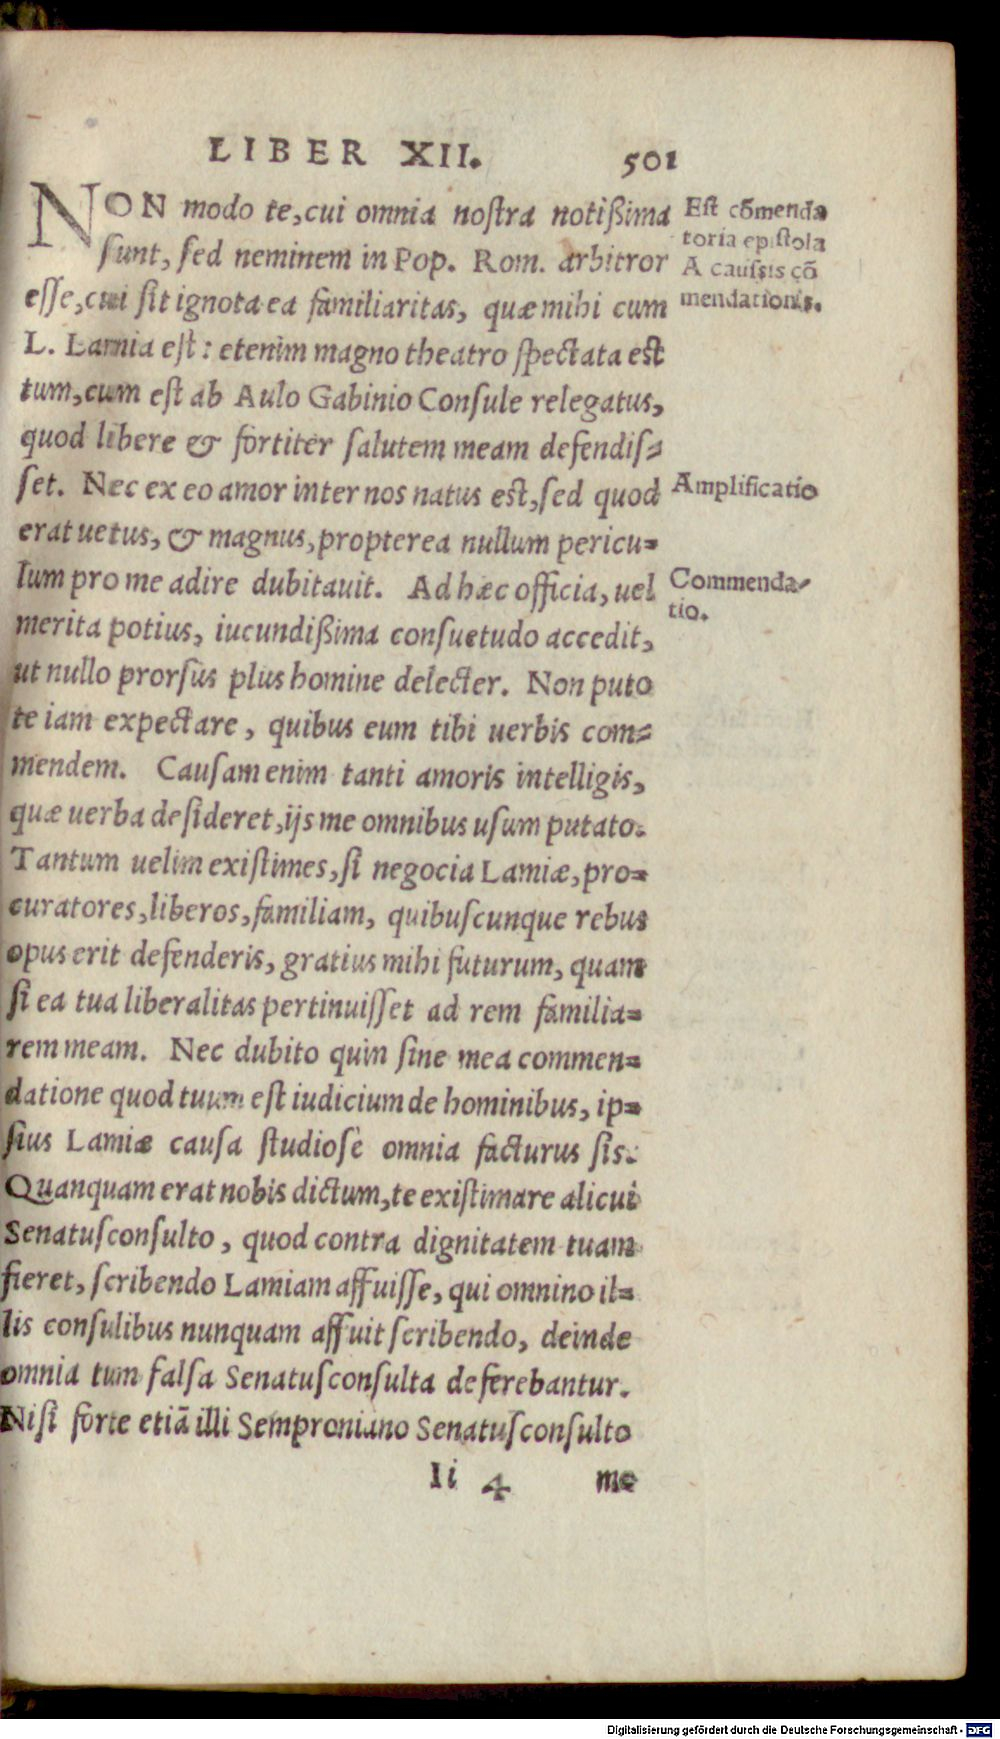 LIBER XII. 501
NON modo te, cui omnia noſtra notißima
ſunt, ſed neminem in Pop. Rom. arbitror
eſſe, cui ſit ignota ea familiaritas, quæ mihi cum
L. Lamia eſt: etenim magno theatro ſpectata est
tum, cum eſt ab Aulo Gabinio Conſule relegatus,
quod libere & fortiter ſalutem meam defendiſ-
ſet. Nec ex eo amor inter nos natus eſt, ſed quod
erat uetus, & magnus, propterea nullum pericu-
lum pro me adire dubitauit. Ad hæc officia, uel
merita potius, iucundißima conſuetudo accedit,
ut nullo prorſus plus homine delecter. Non puto
te iam expectare, quibus eum tibi uerbis com-
mendem. Cauſam enim tanti amoris intelligis,
quæ uerba deſideret, ijs me omnibus uſum putato.
Tantum uelim exiſtimes, ſi negocia Lamiæ, pro-
curatores, liberos, familiam, quibuſcunque rebus
opus erit defenderis, gratius mihi futurum, quam
ſi ea tua liberalitas pertinuiſſet ad rem familia-
rem meam. Nec dubito quin ſine mea commen-
datione quod tuum eſt iudicium de hominibus, ip-
ſius Lamiæ cauſa ſtudioſè omnia facturus ſis.
Quanquam erat nobis dictum, te exiſtimare alicui
Senatuſconſulto, quod contra dignitatem tuam
fieret, ſcribendo Lamiam affuiſſe, qui omnino il-
lis conſulibus nunquam affuit ſcribendo, deinde
omnia tum falſa Senatuſconſulta deferebantur.
Niſi forte etiã illi Semproniano Senatuſconſulto
Ii 4 me
Eſt cõmenda
toria epiſtola
A cauſsis cõ
mendationis.
Amplificatio
Commenda-
tio.
Digitalisierung gefördert durch die Deutsche Forschungsgemeinschaft - DFG